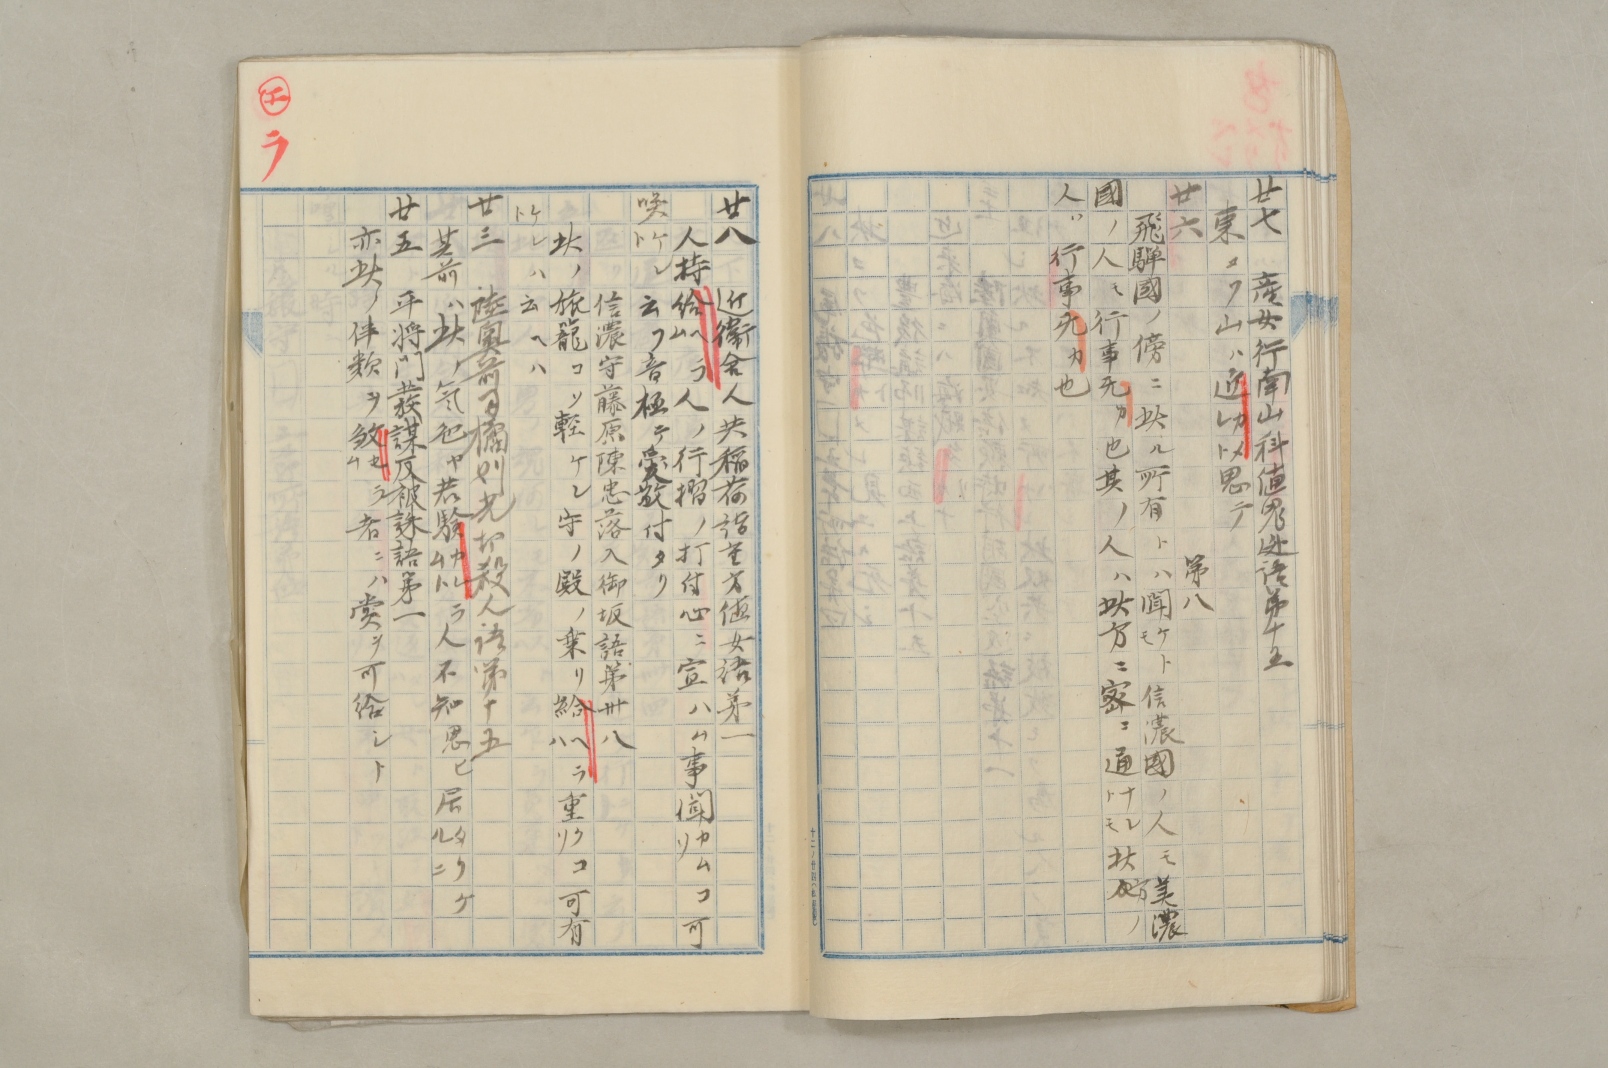 廿七 産女行南山科値鬼迯語第十五
東コフ山ハ近カメレト思テ
廿六 第八
飛騨國ノ傍ニ此ル所有トハ聞ケトモ信濃國ノ人モ美濃
國ノ人モ行事无カ也其ノ人ハ此方ニ密ニ通ナレトモ此方ノ
人ハ行事无カ也
㋓ラ
廿八 近衛舎人共稲荷詣重方値女語第一
人持給ヘラム人ノ行摺ノ打付心ニ宣ハム事聞カムコ可
咲ケレト云フ音極テ愛敬付タリ
信濃守藤原陳忠落入御坂語第卅八
此ノ旅籠コソ軽ケレ守ノ殿ノ乗リ給ヘラハ重クコソ可有
ケレハ云ヘハ
廿三 陸奥前司橘則光切殺人語第十五
其前ハ此ノ気色ヤ若験カルラムト人不知思ヒ居タリケルニ
廿五 平将門發謀反被誅語第一
亦此ノ伴類ヲ殺セラム者ニハ賞ヲ可給シト